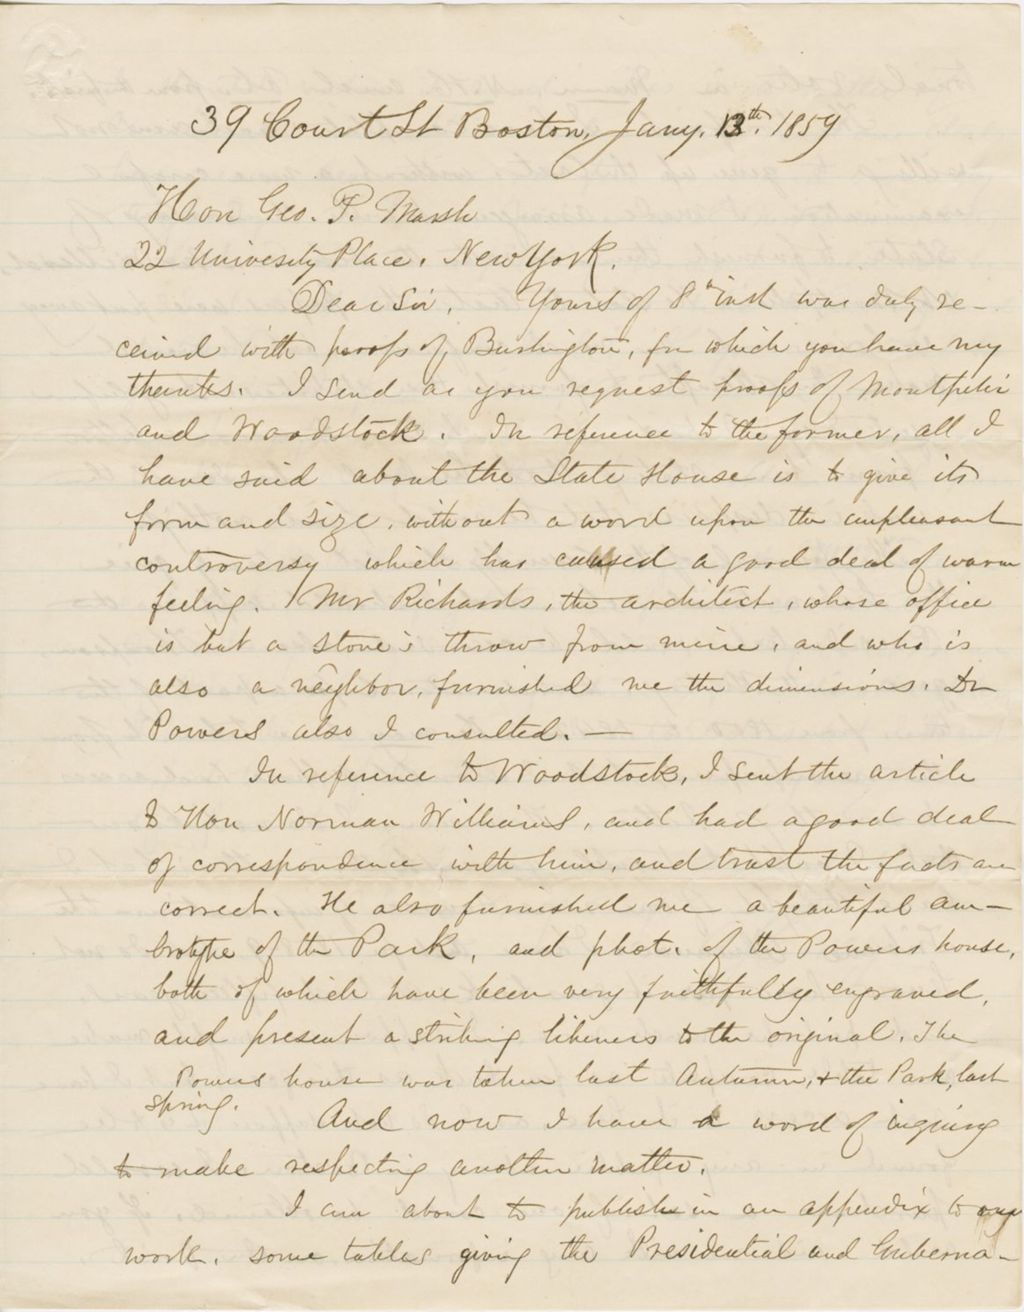 39 Court St Boston, Jany. 13th. 1859
Hon Geo. P. Marsh
22 Univesity Place. New York.
Dear Sir. Yours of 8th inst was duly re-
ceived with proofs of Burlington, for which you have my
thanks. I send as you request proofs of Montpelier
and Woodstock. In reference to the former, all I
have said about the State House is to give its
form and size, without a word upon the unpleasant
controversy which has caused a good deal of warm
feeling. Mr Richards, the architect, whose office
is but a stone's throw from mine, and who is
also a neighbor, furnished me the dimensions. Dr
Powers also I consulted. —
In reference to Woodstock, I sent the article
to Hon Norman Williams, and had a good deal
of correspondence with him, and trust the facts are
correct. He also furnished me a beautiful am-
brotype of the Park, and phot. of the Powers house,
both of which have been very faithfully engraved,
and present a striking likeness to the original. The
Powers house was taken last Autumn, & the Park, last
spring.
And now I have a word of inquiry
to make respecting another matter.
I am about to publish in an appendix to our
work, some tables giving the Presidential and Guberna-